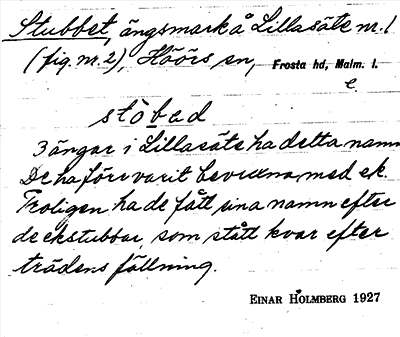 Stubbet, ängsmark å Lillasäte nr. 1
(fig. nr. 2), Höörs sn, Frosta hd, Malm. l.
e.
stòbad
3 ängar i Lillasäte ha detta namn
De ha förr varit bevuxna med ek.
Troligen ha de fått sina namn efter
de ekstubbar, som stått kvar efter
trädens fällning.
EINAR HOLMBERG 1927